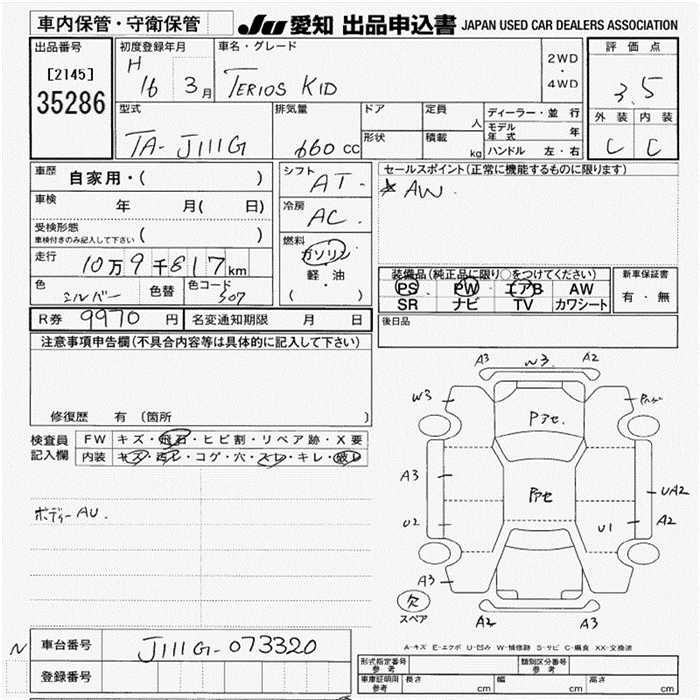 車内保管・守衛保管 JU 愛知 出品申込書 JAPAN USED CAR DEALERS ASSOCIATION
出品番号 初度登録年月 車名・グレード 評価点
[2145] H 16 3月 TERIOS KID 2WD・4WD 3.5
35286
型式 排気量 ドア 定員 人 ディーラー・並行 外装 内装
TA-J111G 660cc 形状 積載 kg モデル年式 年 C C
ハンドル 左・右
車歴 自家用・( ) シフト AT- セールスポイント(正常に機能するものに限ります)
車検 年 月( 日) 冷房 AC. AW.
受検形態 ( )
車検付きのみ記入して下さい
走行 10万9千817km 燃料 ガソリン 軽油 ( )
装備品(純正品に限り○をつけてください) 新車保証書
色 シルバー 色替 色コード S07 PS PW エアB AW 有・無
SR ナビ TV カワシート
R券 9970円 名変通知期限 月 日 後日品
注意事項申告欄(不具合内容等は具体的に記入して下さい)
修復歴 有 (箇所 )
検査員記入欄 FW キズ・飛石・ヒビ割・リペア跡・X要
内装 キズ・汚レ・コゲ・穴・スレ・キレ・破レ
ボディーAU.
A3 W3 A2
W3
Pアセ.
A3 Pアセ UA2
U2 U1 A2
A3
欠
スペア A2 A3
A-キズ E-エクボ U-凹み W-補修跡 S-サビ C-腐食 XX-交換済
N 車台番号 J111G-073320
登録番号
形式指定番号 参考 類別区分番号 参考
車庫証明用 参考 長さ cm 幅 cm 高さ cm